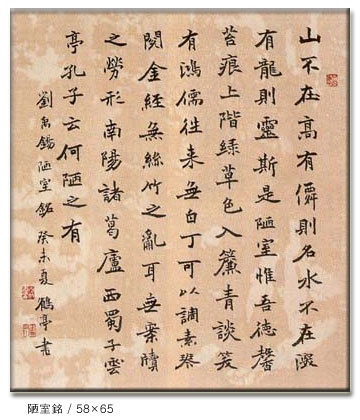 山不在高有僊則名水不在深
有龍則靈斯是陋室惟吾德馨
苔痕上階緑草色入簾青談笑
有鴻儒往来無白丁可以調素琴
閱金經無絲竹之亂耳無案牘
之勞形南陽諸葛廬西蜀子雲
亭孔子云何陋之有
劉禹錫陋室銘 癸未夏 鶴亭書
陋室銘 / 58×65